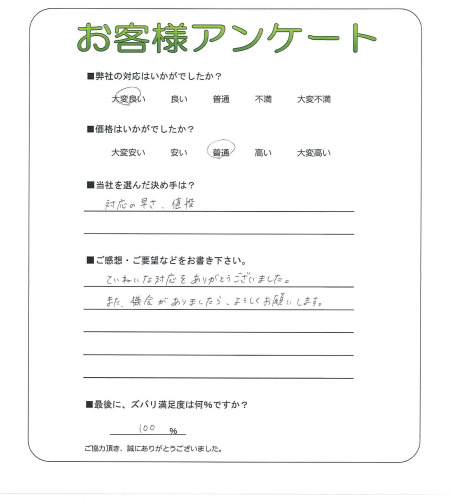 お客様アンケート
■弊社の対応はいかがでしたか？
大変良い 良い 普通 不満 大変不満
■価格はいかがでしたか？
大変安い 安い 普通 高い 大変高い
■当社を選んだ決め手は？
対応の早さ、値段
■ご感想・ご要望などをお書き下さい。
ていねいな対応をありがとうございました。
また、機会がありましたら、よろしくお願いします。
■最後に、ズバリ満足度は何%ですか？
100 %
ご協力頂き、誠にありがとうございました。